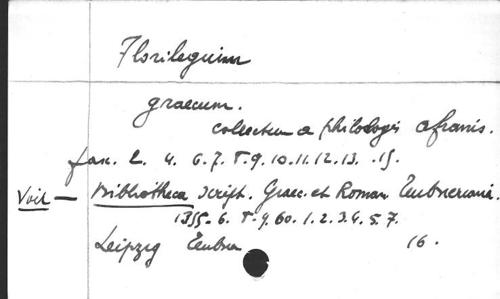 Florilegium
graecum.
collectum a philologis afranis.
fasc. 2. 4. 6. 7. 8. 9. 10. 11. 12. 13. 15.
Voir — Bibliotheca script. Graec. et Roman. Teubneriana.
1355. 6. 8. 9. 60. 1. 2. 3. 4. 5. 7.
Leipzig Teubner 16.